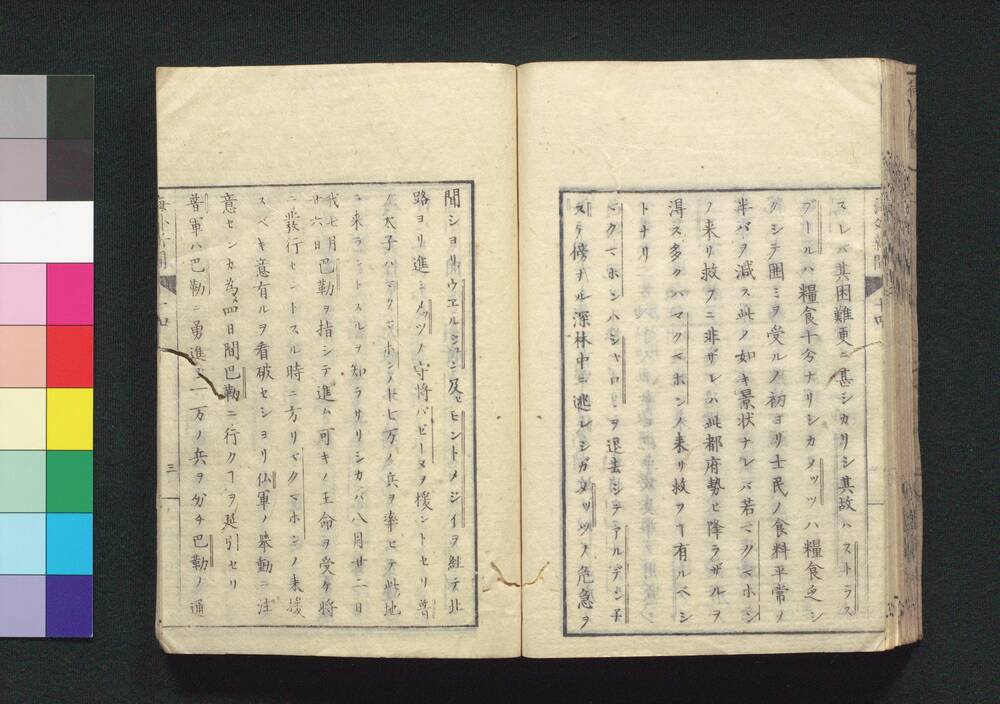 スレバ其困難更ニ甚シカリシ其故ハストラス
ブールハ糧食十分ナリシカメッツハ糧食乏シ
クシテ囲ミヲ受ルノ初ヨリ士民ノ食料平常ノ
半バヲ減ス此ノ如キ景状ナレバ若マクマホン
ノ来リ救フニ非ザレハ此都府勢ヒ降ラザルヲ
得ス多クハマクマホンノ来リ救フ丁有ルベシ
トナリ
マクマホンハシャロンヲ退去シテアルデンチ
ステ傍ナル深林中ニ逃レシガメッツノ危急ヲ
聞シヨリウエルジン及ヒモントメジイヲ経テ北
路ヨリ進ミメッツノ守将バゼーヌヲ援ントセリ普
ノ太子ハマクマホンノ十七万ノ兵ヲ率ヒテ此地
ニ来ラントスルヲ知ラサリシカバ八月廿二日
我七月廿六日巴勒ヲ指シテ進ム可キノ王命ヲ受ケ将
ニ発行セントスル時ニ方リマクマホンノ来援
スベキ意有ルヲ看破セシヨリ仏軍ノ挙動ニ注
意センカ為メ四日間巴勒ニ行ク丁ヲ延引セリ
普軍ハ巴勒ニ勇進シ一万ノ兵ヲ分チ巴勒ノ通
三